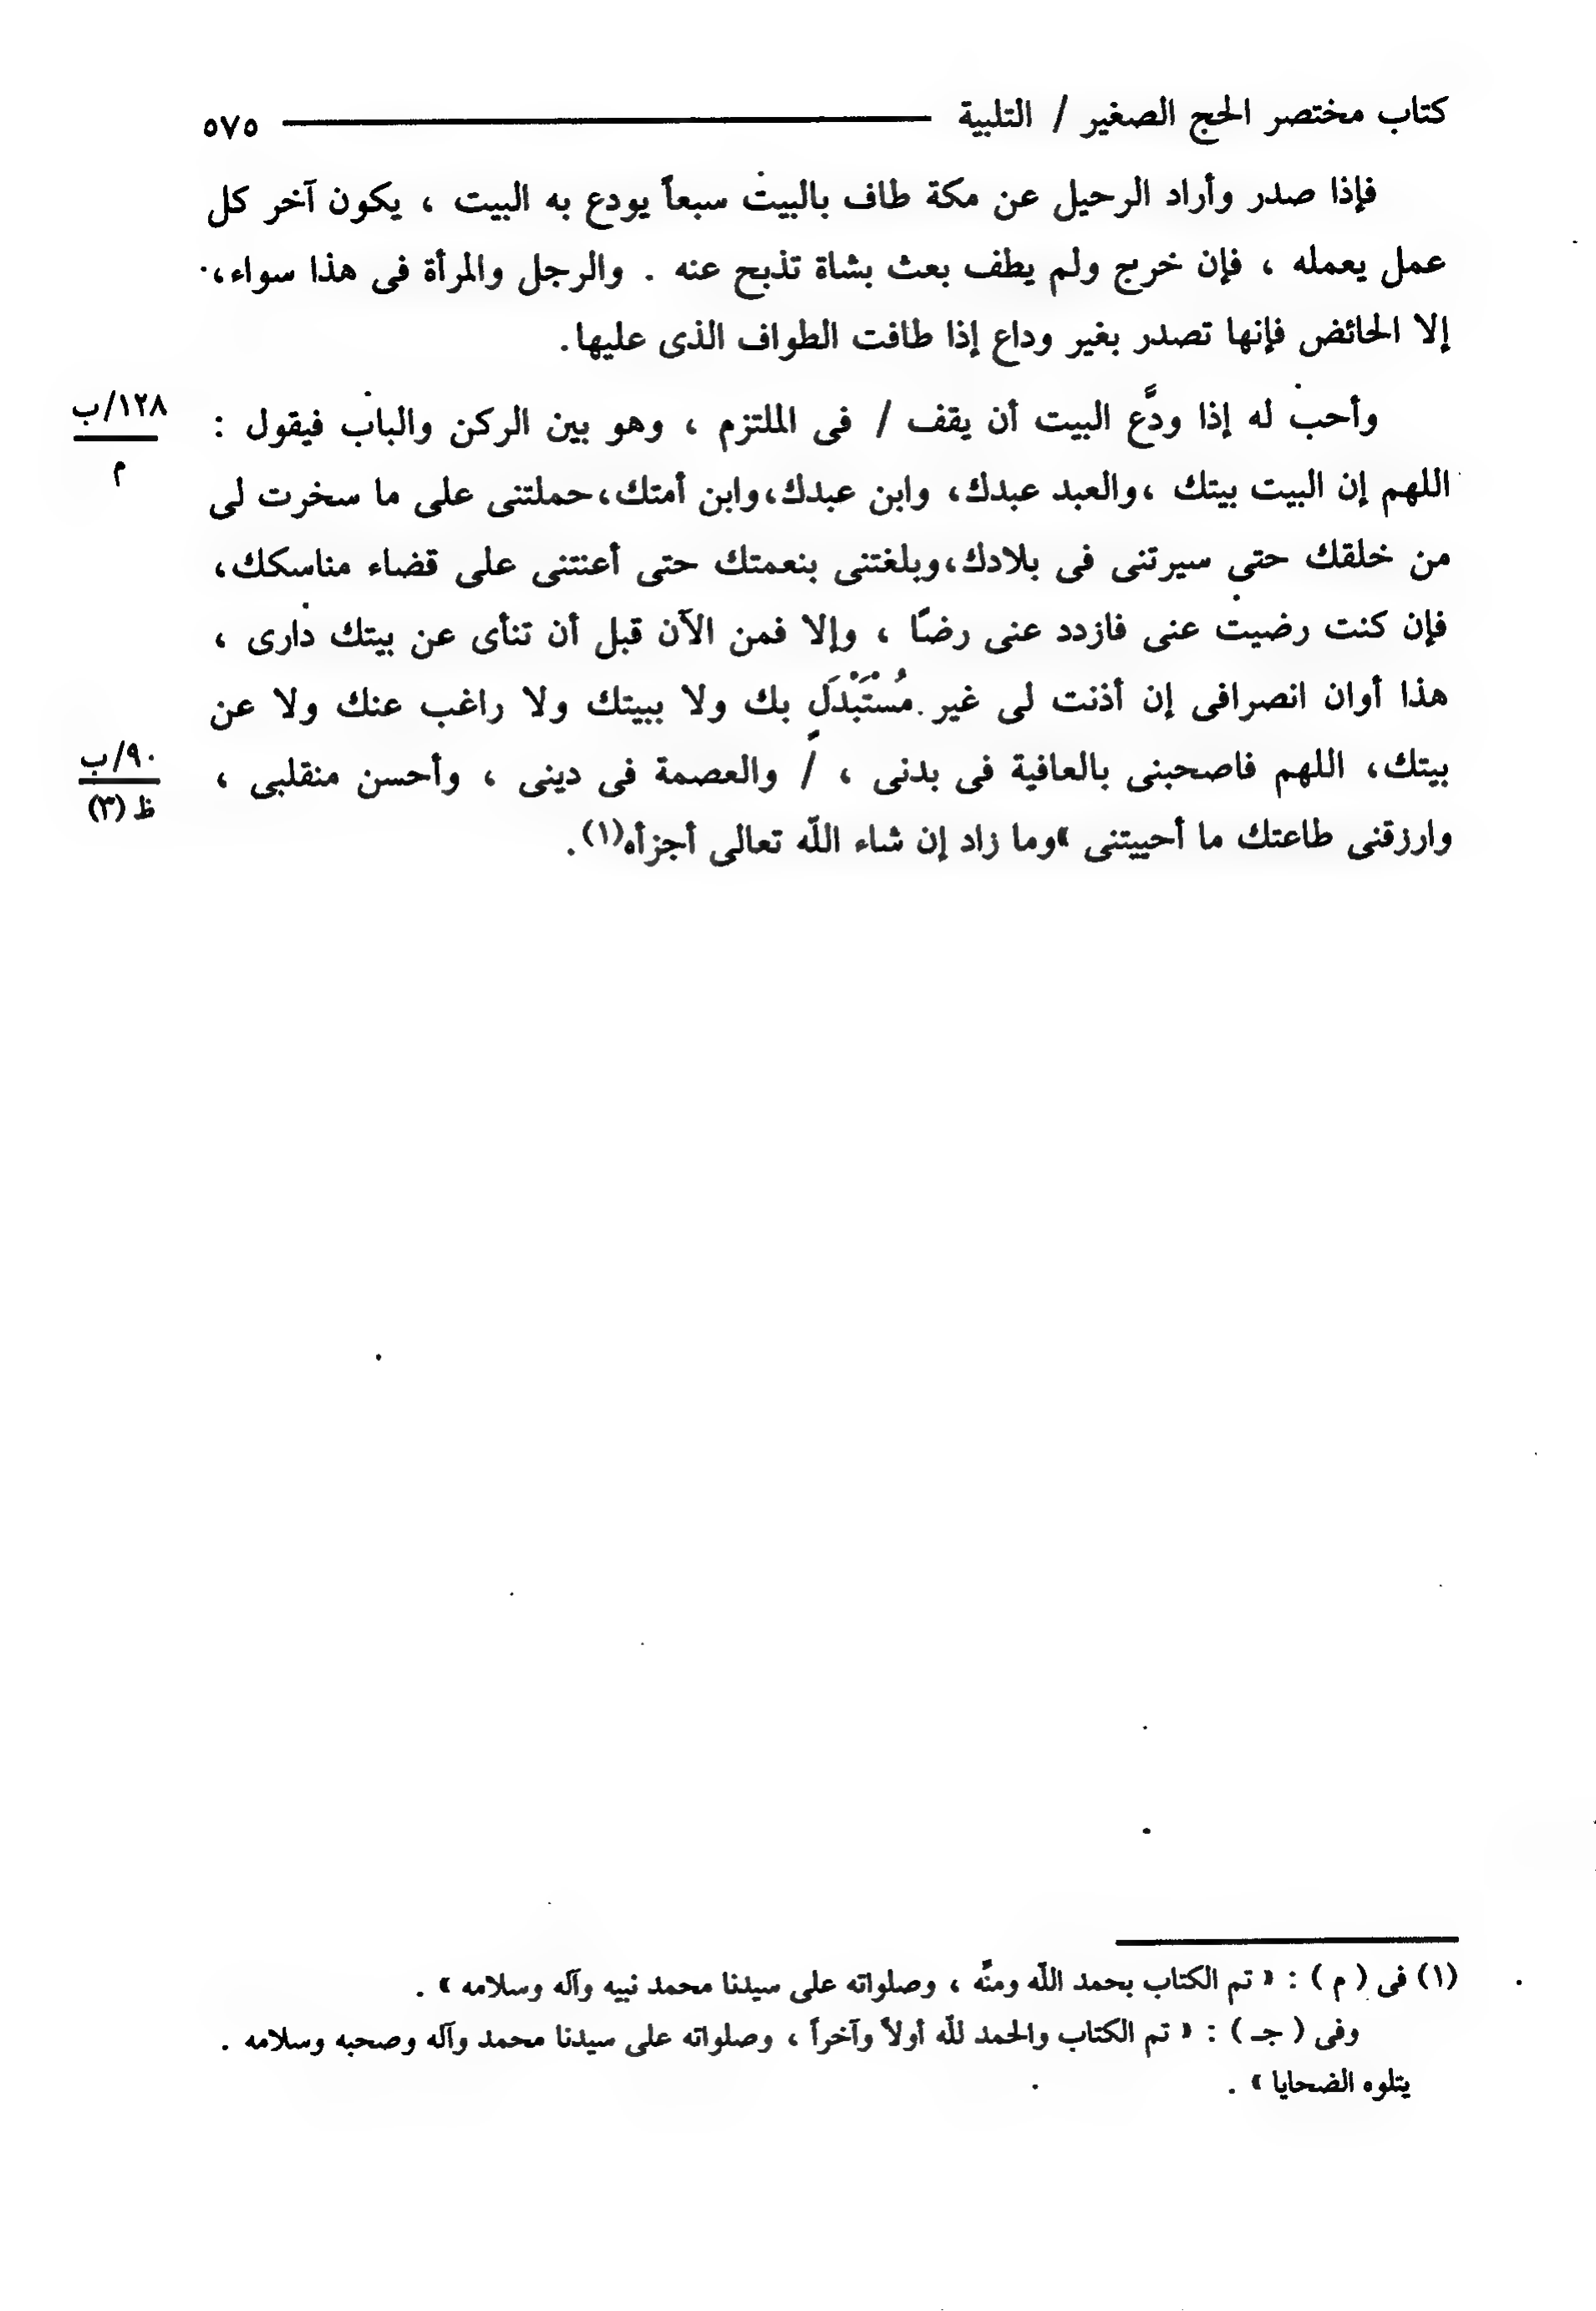 كتاب مختصر الحج الصغير / التلبية ٥٧٥
فإذا صدر وأراد الرحيل عن مكة طاف بالبيت سبعاً يودع به البيت ، يكون آخر كل
عمل يعمله ، فإن خرج ولم يطف بعث بشاة تذبح عنه . والرجل والمرأة فى هذا سواء،
إلا الحائض فإنها تصدر بغير وداع إذا طافت الطواف الذى عليها.
وأحب له إذا ودَّع البيت أن يقف / فى الملتزم ، وهو بين الركن والباب فيقول :
١٢٨/ب
م
اللهم إن البيت بيتك ،والعبد عبدك، وابن عبدك،وابن أمتك،حملتنى على ما سخرت لى
من خلقك حتى سيرتنى فى بلادك،وبلغتنى بنعمتك حتى أعنتنى على قضاء مناسكك،
فإن كنت رضيت عنى فازدد عنى رضًا ، وإلا فمن الآن قبل أن تنأى عن بيتك دارى ،
هذا أوان انصرافى إن أذنت لى غير مُسْتَبْدَلٍ بك ولا ببيتك ولا راغب عنك ولا عن
بيتك، اللهم فاصحبنى بالعافية فى بدنى ، / والعصمة فى دينى ، وأحسن منقلبى ،
٩٠/ب
ظ (٣)
وارزقنى طاعتك ما أحييتنى »وما زاد إن شاء اللّه تعالى أجزأه(١).
(١) فى ( م ) : « تم الكتاب بحمد اللّه ومنَّه ، وصلواته على سيدنا محمد نبيه وآله وسلامه » .
وفى ( جـ ) : « تم الكتاب والحمد للّه أولاً وآخراً ، وصلواته على سيدنا محمد وآله وصحبه وسلامه .
يتلوه الضحايا » .